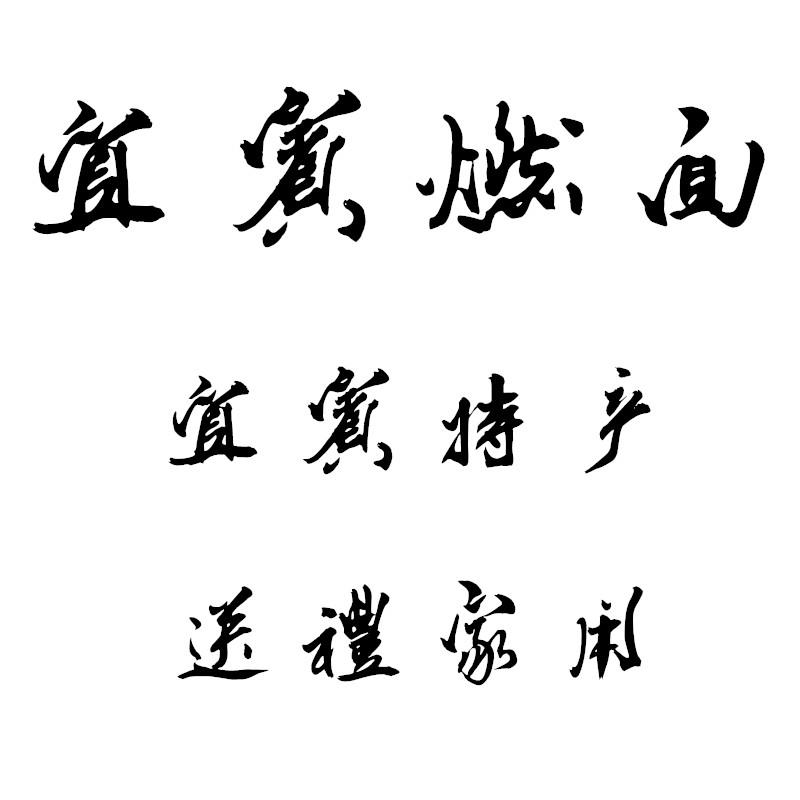 宜賓燃面
宜賓特产
送禮家用